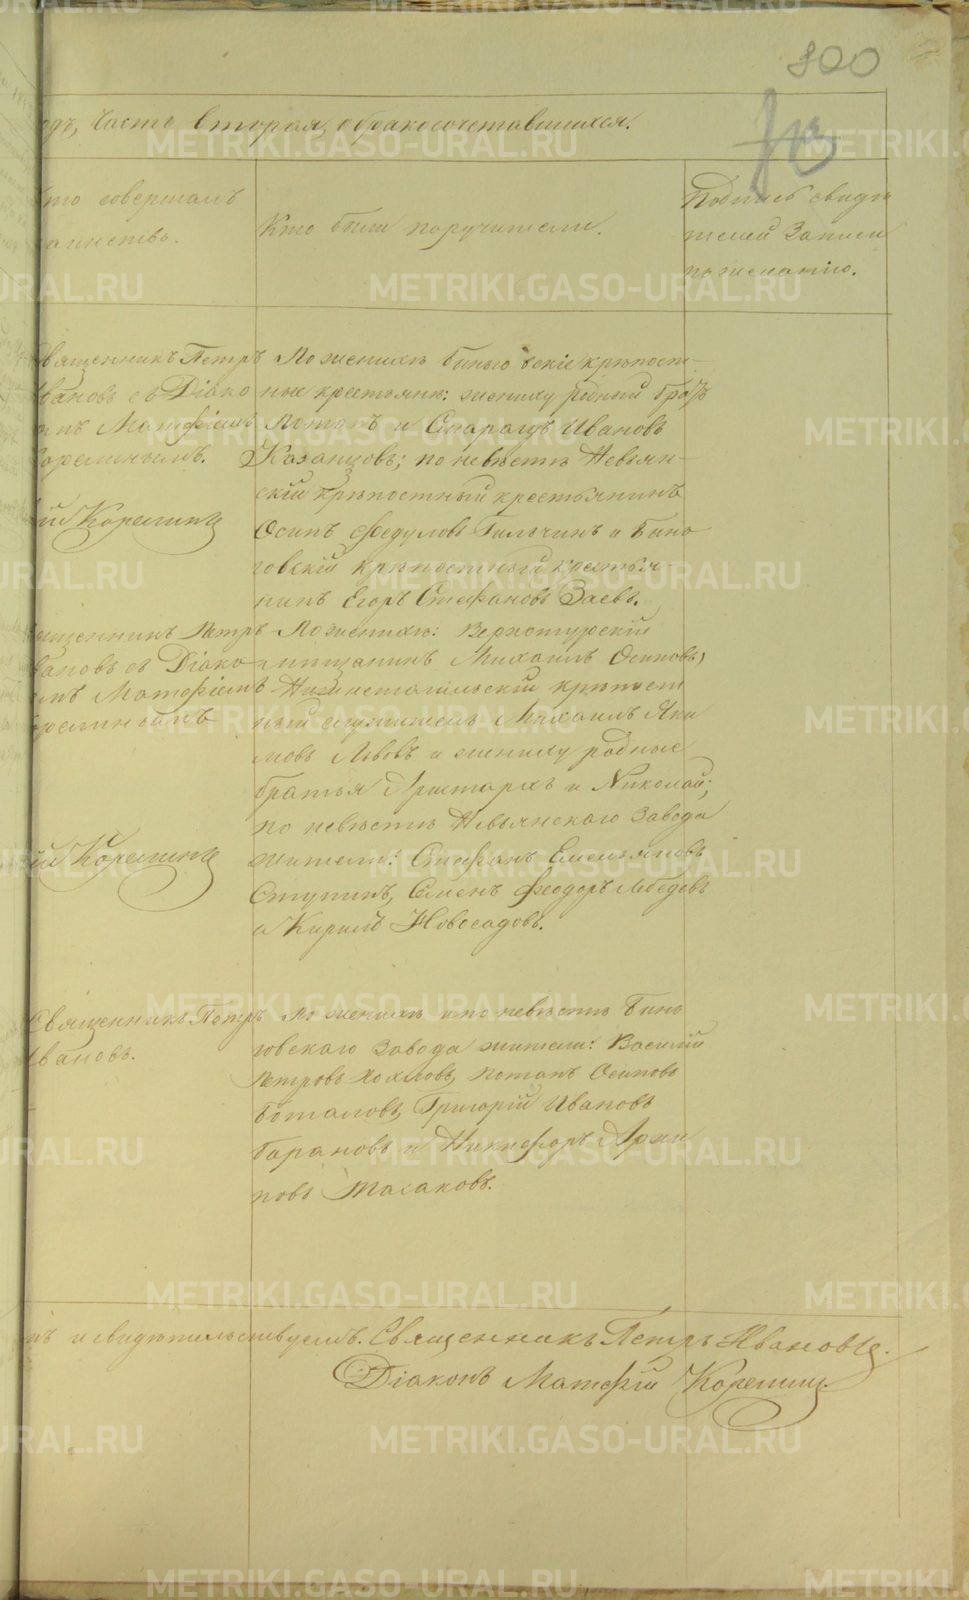 800
одъ, Часть вторая, о бракосочетавшихся.
то совершалъ
таинство.
Кто были поручители.
Подпись свидѣ
телей записи
по желанію.
Священникъ Петръ
Ивановъ съ Діако
номъ Матѳіемъ
Корелинымъ.
ій Корелинъ
По женихѣ Быньговскіе крѣпост-
ные крестьяне: жениху родный братъ
Потапъ и Иванов
Казанцовъ; по невѣстѣ Невьян-
скій крѣпостный крестьянинъ
Осипъ Федуловъ и Быньго
говскій крѣпостный крестья-
нинъ Егоръ Стефановъ Заевъ.
Священникъ Петръ
Ивановъ съ Діако
номъ Матѳіемъ
Корелинымъ
ій Корелинъ
По женихѣ: Верхотурскій
мѣщанинъ Михаилъ Осиповъ,
Нижнетагильскій крѣпост
ный служитель Михаилъ Яки
мовъ Львовъ и жениху родные
братья Аристархъ и Николай;
по невѣстѣ Невьянскаго завода
жители: Стефанъ Емельяновъ
Ступинъ, Семенъ Феодоръ Лебедевъ
и Кирилъ Новосадовъ.
Священникъ Петръ
Ивановъ.
По женихѣ и по невѣстѣ Бынь
говскаго завода жители: Василій
Петровъ Хохловъ, Потапъ Осиповъ
Григорій Ивановъ
Барановъ и Никифоръ Архи
повъ Масаковъ.
и свидѣтельствуемъ. Священникъ Петръ Ивановъ.
Діаконъ Матѳій Корелинъ.
METRIKI.GASO-URAL.RU